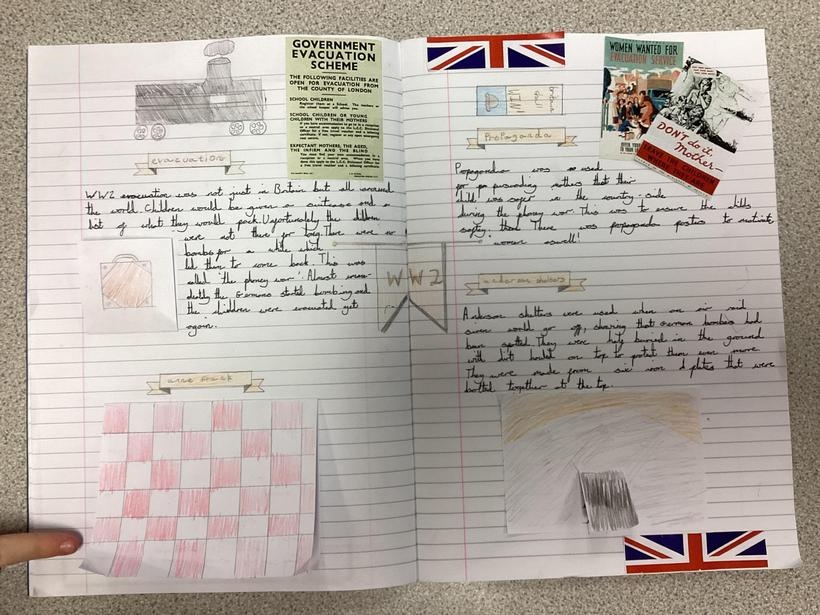 GOVERNMENT
EVACUATION
SCHEME
THE FOLLOWING FACILITIES ARE
OPEN FOR EVACUATION FROM
THE COUNTY OF LONDON
SCHOOL CHILDREN
SCHOOL CHILDREN OR YOUNG
CHILDREN WITH THEIR MOTHERS
EXPECTANT MOTHERS, THE AGED,
THE INFIRM AND THE BLIND
evacuation
WW2 evacuation was not just in Britain but all around
the world. Children would be given a suitcase and a
list of what they would pack. Unfortunately the children
were not there for long. There were no
bombs for a while which
led them to come back. This was
called 'the phoney war'. Almost
the Germans started bombing and
the children were evacuated yet
again.
WW2
WOMEN WANTED FOR
EVACUATION SERVICE
DON'T do it,
Mother-
LEAVE THE CHILDREN
WHERE THEY ARE
Propaganda
Propaganda was so used
for persuading mothers that their
child was safer in the country-side
during the phoney war. This was to ensure the childs
safety. There was propaganda posters to motivate
women aswell!
anderson shelters
Anderson shelters were used when an air raid
siren would go off, showing that German bombers had
been spotted. They were buried in the ground
with dirt on top to protect them even more.
They were made from six iron plates that were
bolted together at the top.